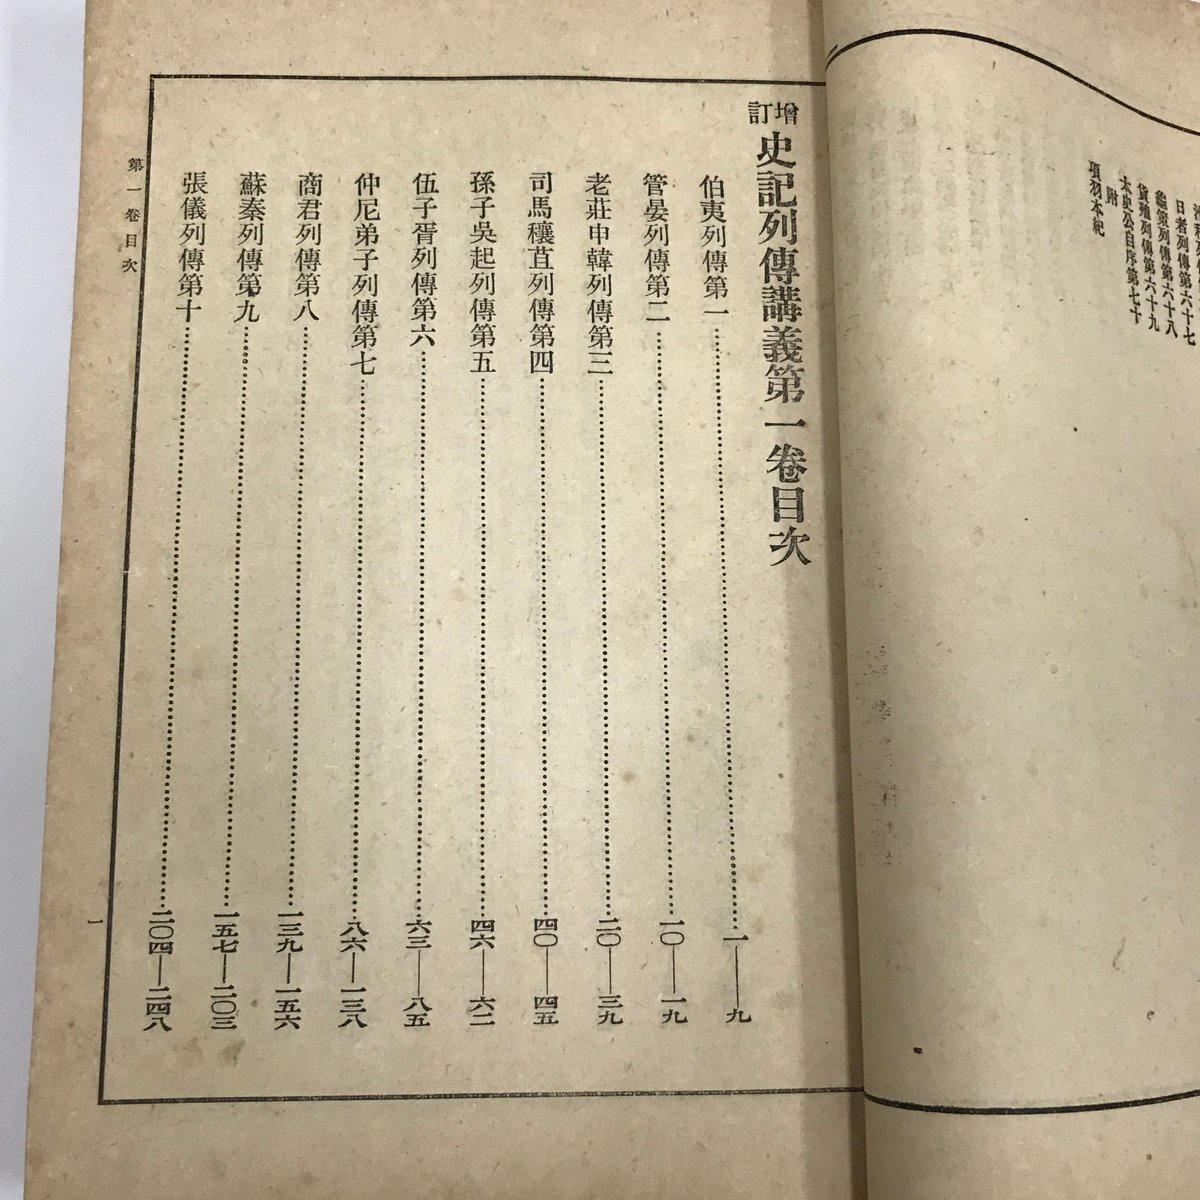 日者列傳第六十七
龜策列傳第六十八
貨殖列傳第六十九
太史公自序第七十
附
項羽本紀
增訂史記列傳講義第一卷目次
伯夷列傳第一………一——九
管晏列傳第二………一〇——一九
老莊申韓列傳第三………二〇——三九
司馬穰苴列傳第四………四〇——四五
孫子吳起列傳第五………四六——六二
伍子胥列傳第六………六三——八五
仲尼弟子列傳第七………八六——一三八
商君列傳第八………一三九——一五六
蘇秦列傳第九………一五七——二〇三
張儀列傳第十………二〇四——二四八
第一卷目次
一